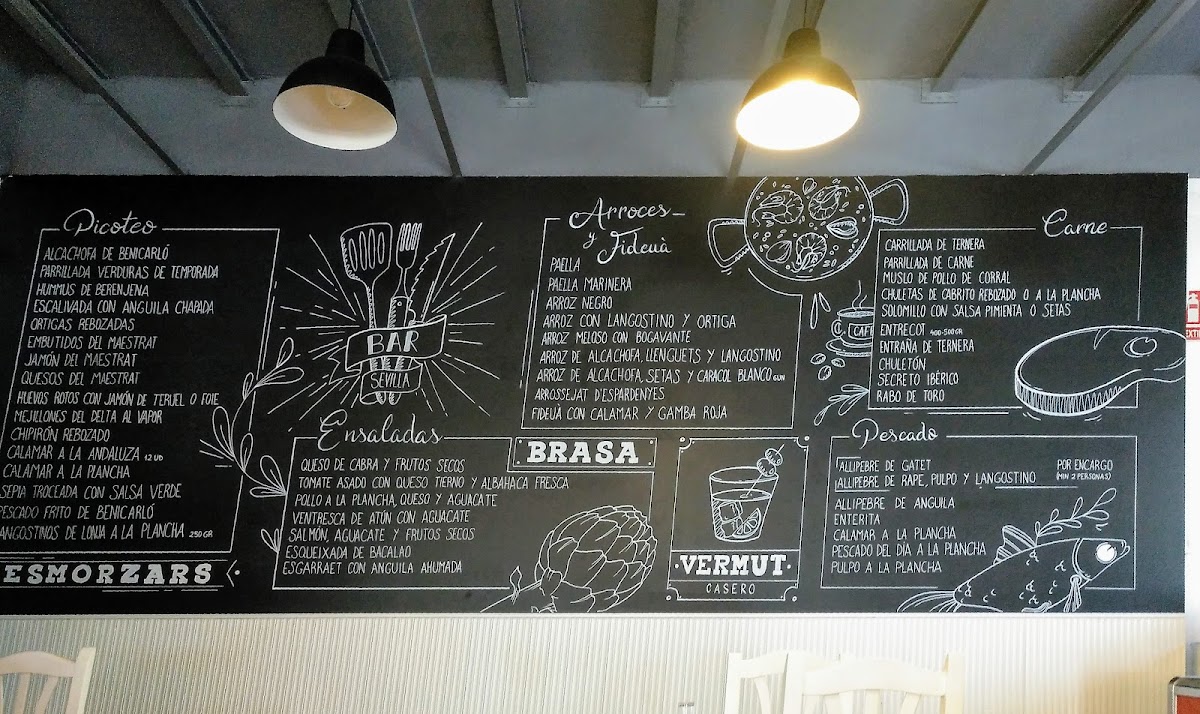 Picoteo
ALCACHOFA DE BENICARLÓ
PARRILLADA VERDURAS DE TEMPORADA
HUMMUS DE BERENJENA
ESCALIVADA CON ANGUILA CHAPADA
ORTIGAS REBOZADAS
EMBUTIDOS DEL MAESTRAT
JAMÓN DEL MAESTRAT
QUESOS DEL MAESTRAT
HUEVOS ROTOS CON JAMÓN DE TERUEL O FOIE
MEJILLONES DEL DELTA AL VAPOR
CHIPIRÓN REBOZADO
CALAMAR A LA ANDALUZA 12 UD
CALAMAR A LA PLANCHA
SEPIA TROCEADA CON SALSA VERDE
PESCADO FRITO DE BENICARLÓ
ANGOSTINOS DE LONJA A LA PLANCHA 250 GR
ESMORZARS
BAR
SEVILLA
Ensaladas
QUESO DE CABRA Y FRUTOS SECOS
TOMATE ASADO CON QUESO TIERNO Y ALBAHACA FRESCA
POLLO A LA PLANCHA, QUESO Y AGUACATE
VENTRESCA DE ATÚN CON AGUACATE
SALMÓN, AGUACATE Y FRUTOS SECOS
ESQUEIXADA DE BACALAO
ESGARRAET CON ANGUILA AHUMADA
Arroces
y Fideuà
PAELLA
PAELLA MARINERA
ARROZ NEGRO
ARROZ CON LANGOSTINO Y ORTIGA
ARROZ MELOSO CON BOGAVANTE
ARROZ DE ALCACHOFA, LLENGUETS Y LANGOSTINO
ARROZ DE ALCACHOFA, SETAS Y CARACOL BLANCO
ARROSSEJAT D'ESPARDENYES
FIDEUÀ CON CALAMAR Y GAMBA ROJA
BRASA
VERMUT
CASERO
CAFÉ
Carne
CARRILLADA DE TERNERA
PARRILLADA DE CARNE
MUSLO DE POLLO DE CORRAL
CHULETAS DE CABRITO REBOZADO O A LA PLANCHA
SOLOMILLO CON SALSA PIMIENTA O SETAS
ENTRECOT 400-500 GR
ENTRAÑA DE TERNERA
CHULETÓN
SECRETO IBÉRICO
RABO DE TORO
Pescado
ALLIPEBRE DE GATET
ALLIPEBRE DE RAPE, PULPO Y LANGOSTINO
POR ENCARGO
(MIN 2 PERSONAS)
ALLIPEBRE DE ANGUILA
ENTERITA
CALAMAR A LA PLANCHA
PESCADO DEL DÍA A LA PLANCHA
PULPO A LA PLANCHA
EXT